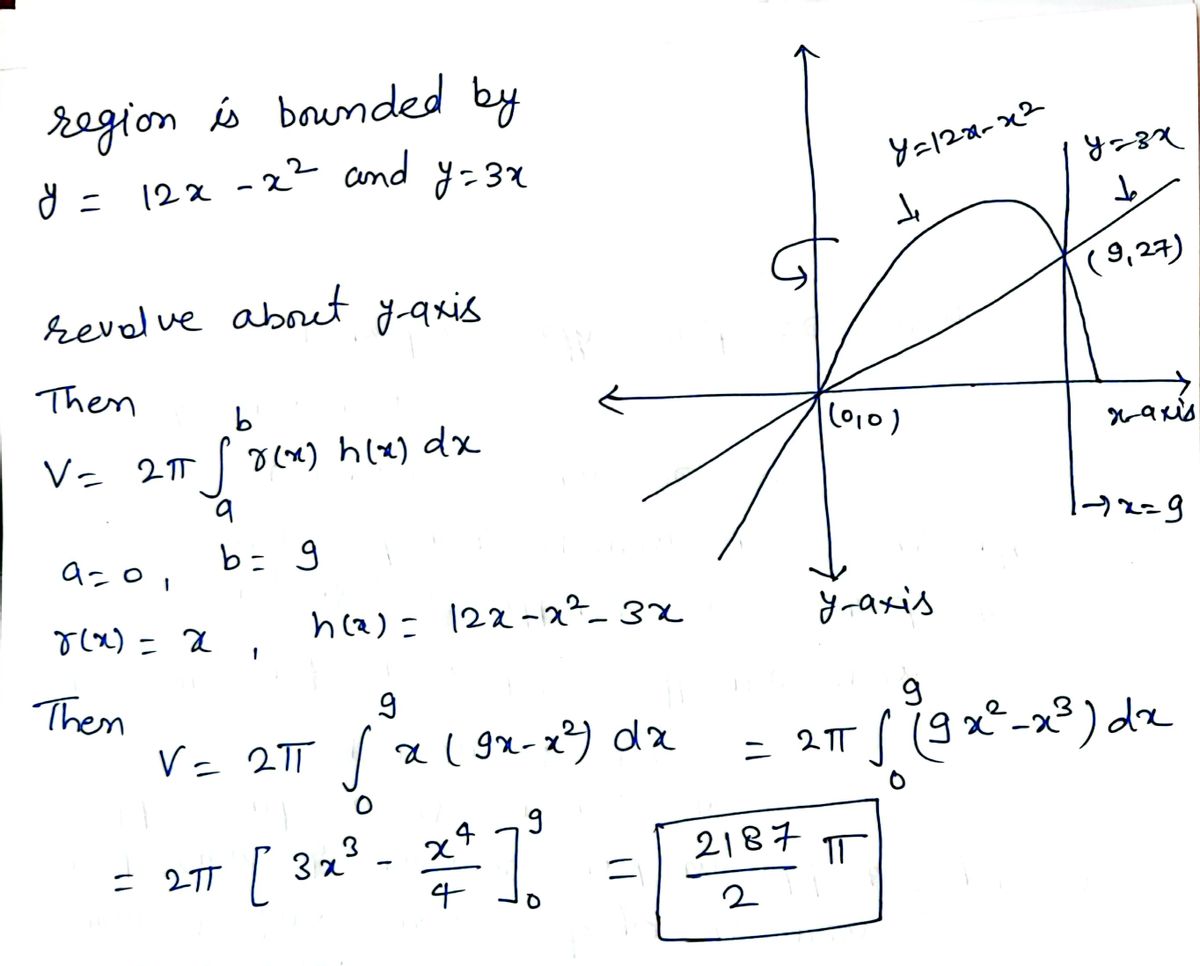 region is bounded by
y = 12x - x² and y=3x
revolve about y-axis
Then
V = 2π ∫ₐᵇ r(x) h(x) dx
a=0, b= 9
r(x) = x , h(x) = 12x-x²-3x
Then
V = 2π ∫₀⁹ x(9x-x²) dx = 2π ∫₀⁹ (9x²-x³) dx
= 2π [3x³ - x⁴/4]₀⁹ = 2187/2 π
y=12x-x²
y=3x
(9,27)
(0,0)
x-axis
→x=9
y-axis